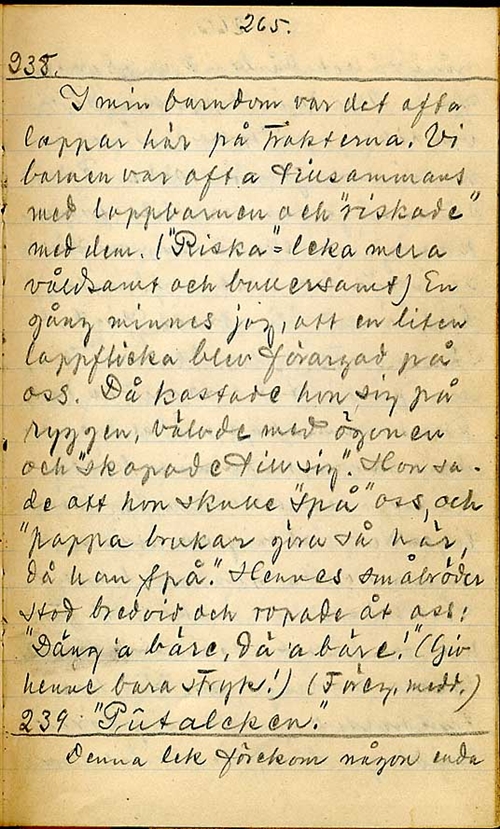 265.
938.
I min barndom var det ofta
lappar här på trakterna. Vi
barnen var ofta tillsammans
med lappbarnen och "riskade"
med dem. ("Riska" = leka mera
våldsamt och bullersamt) En
gång minnes jag, att en liten
lappflicka blev förargad på
oss. Då kastade hon sig på
ryggen, välvde med ögonen
och "skapade till sig". Hon sa-
de att hon skulle "spå" oss, och
"pappa brukar göra så här,
då han spå." Hennes småbröder
stod bredvid och ropade åt oss:
"Däng 'a bäre, dä 'a bäre!" (Giv
henne bara stryk!) (Föreg. medd.)
239 "Pûtaleken."
Denna lek förekom någon enda